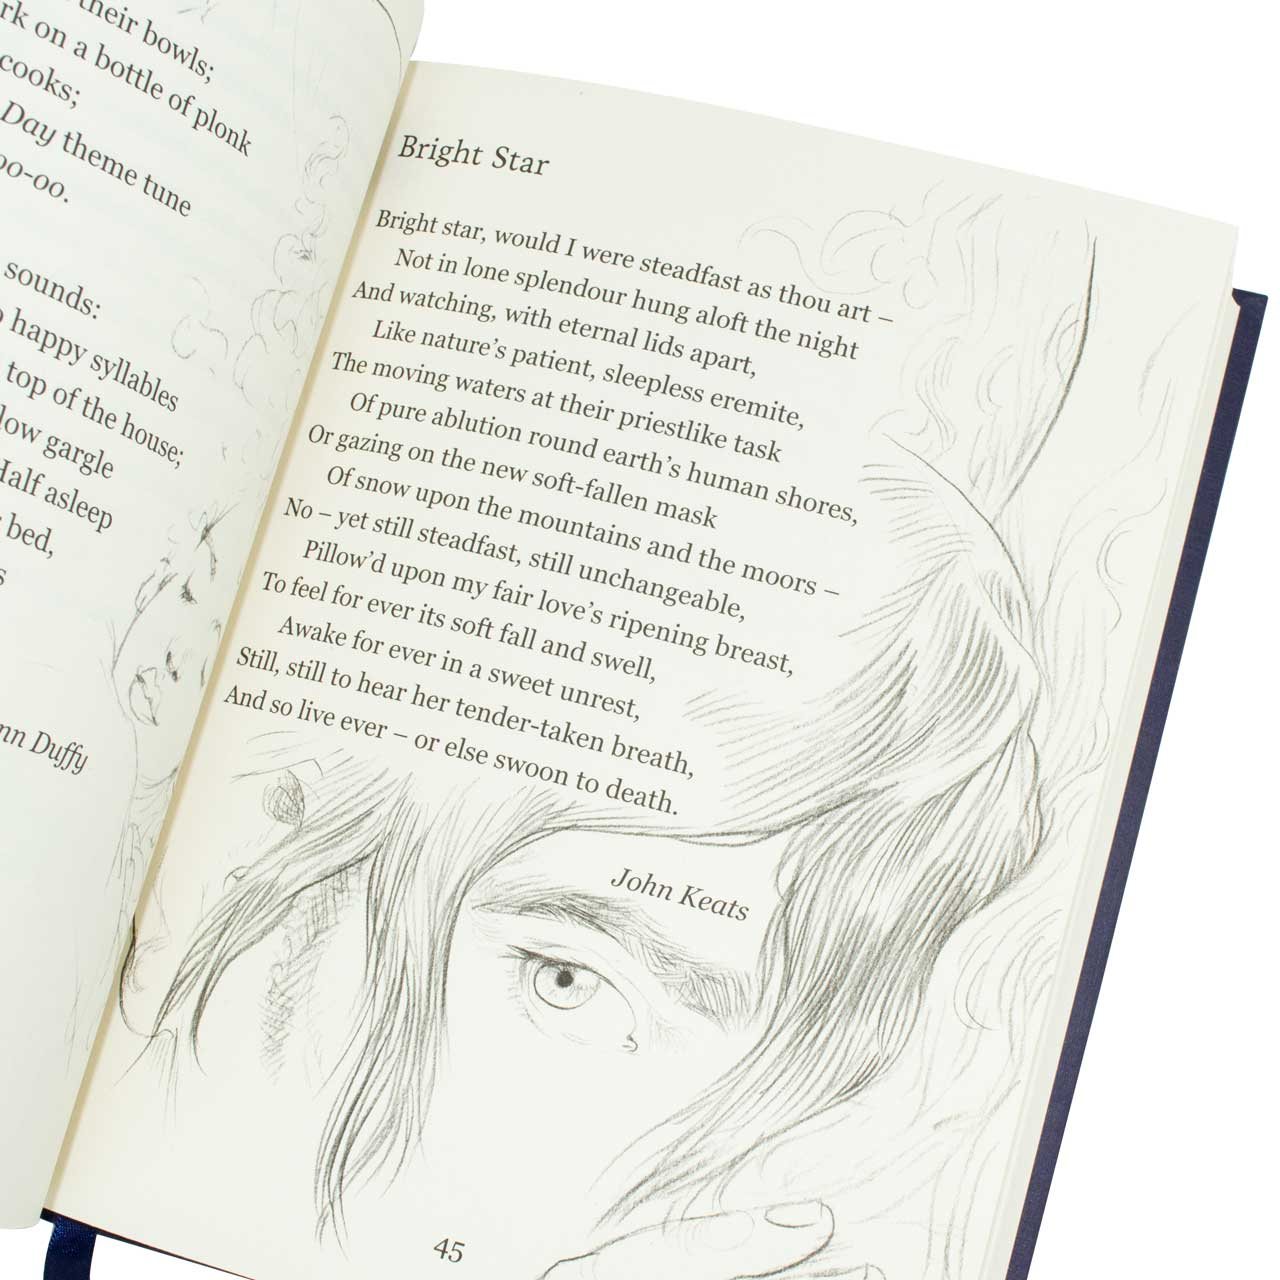 their bowls;
rk on a bottle of plonk
cooks;
Day theme tune
oo-oo.
sounds:
happy syllables
top of the house;
low gargle
Half asleep
bed,
s
nn Duffy
Bright Star
Bright star, would I were steadfast as thou art –
Not in lone splendour hung aloft the night
And watching, with eternal lids apart,
Like nature's patient, sleepless eremite,
The moving waters at their priestlike task
Of pure ablution round earth's human shores,
Or gazing on the new soft-fallen mask
Of snow upon the mountains and the moors –
No – yet still steadfast, still unchangeable,
Pillow'd upon my fair love's ripening breast,
To feel for ever its soft fall and swell,
Awake for ever in a sweet unrest,
Still, still to hear her tender-taken breath,
And so live ever – or else swoon to death.
John Keats
45